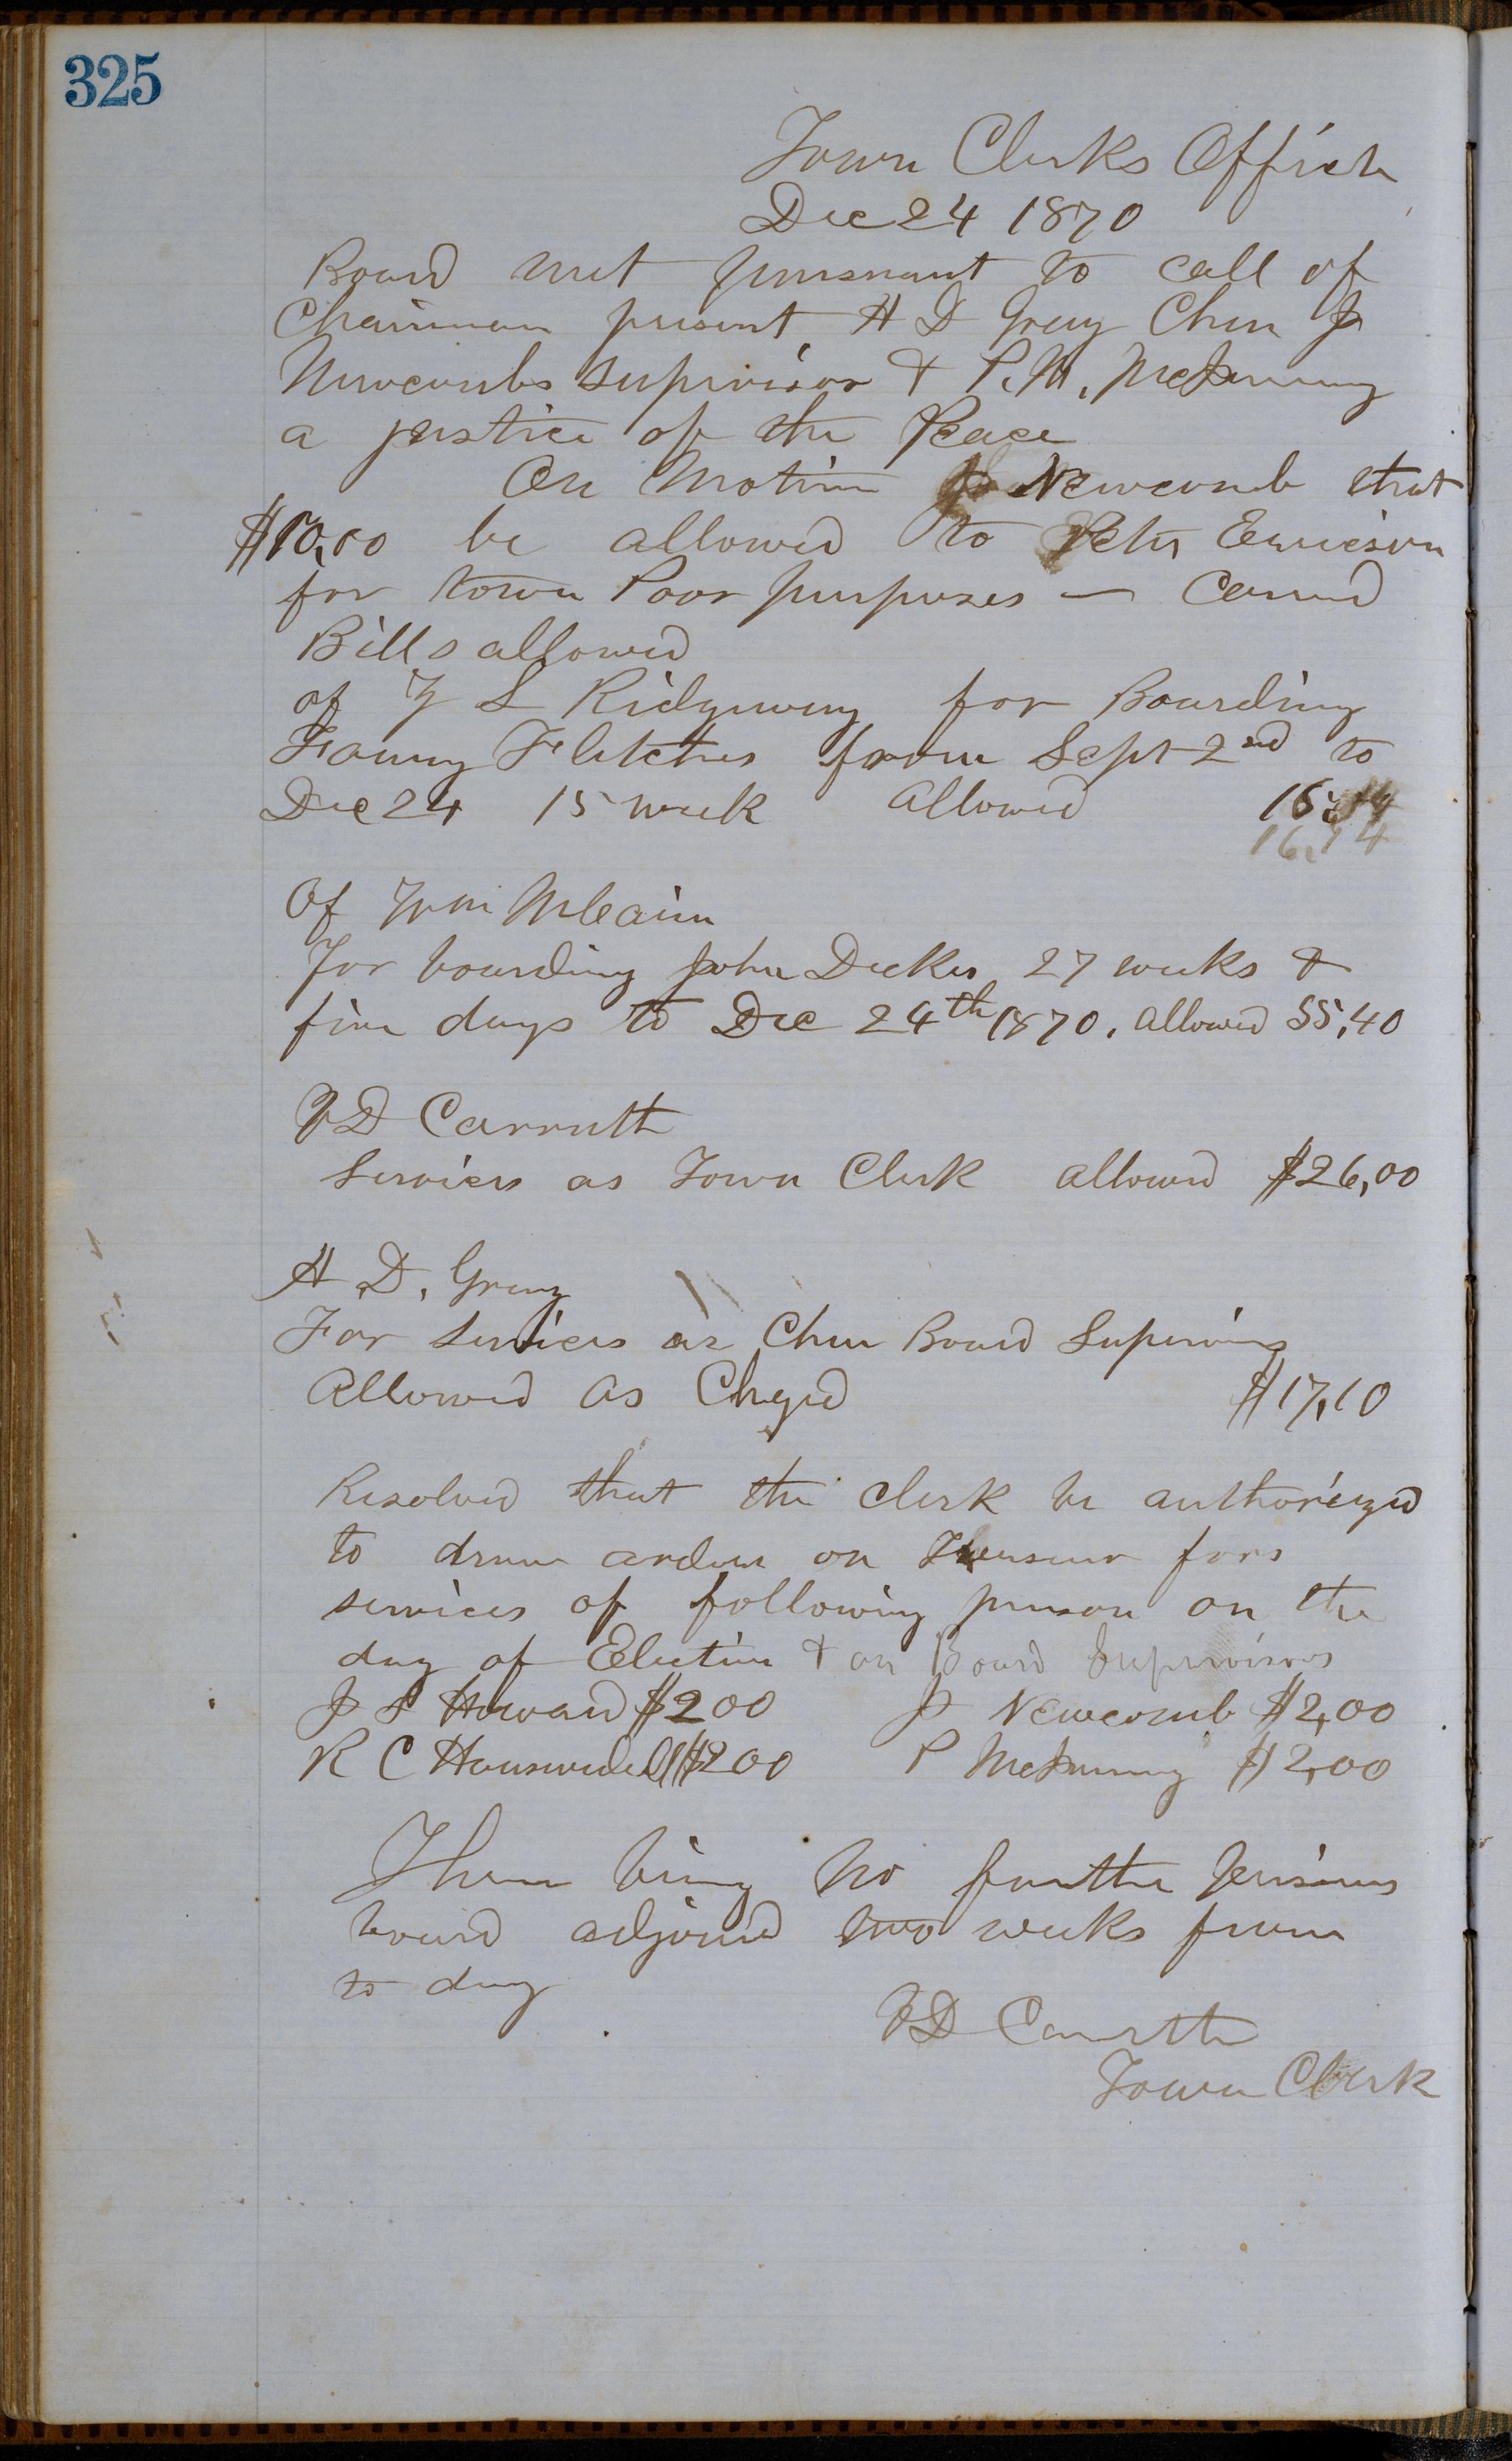 325
Town Clerks Office
Dec 24 1870
Board met pursuant to call of
Chairman present H D Gray Chm J
Newcombs supervisor & P. M. McKenny
a justice of the Peace
On Motion J Newcomb that
$10,00 be allowed to Peter Erricson
for town Poor purposes — Carried
Bills allowed
of L Ridgway for Boarding
Fanny Fletcher from Sept 2nd to
Dec 24 15 week allowed 16,14
16,14
Of Wm McLain
For boarding John Decker 27 weeks &
five days to Dec 24th 1870. allowed 55,40
D Carruth
Services as Town Clerk allowed $26,00
H D. Gray
For services as Chm Board Supervisors
Allowed as Chgd $17,10
Resolved that the clerk be authorized
to draw orders on Treasurer for
services of following person on the
day of Election & on Board Supervisors
J S Howard $2 00 J Newcomb $2,00
R C $2 00 P McKenny $2,00
There being no further business
board adjornd two weeks from
to day
D Carruth
Town Clerk